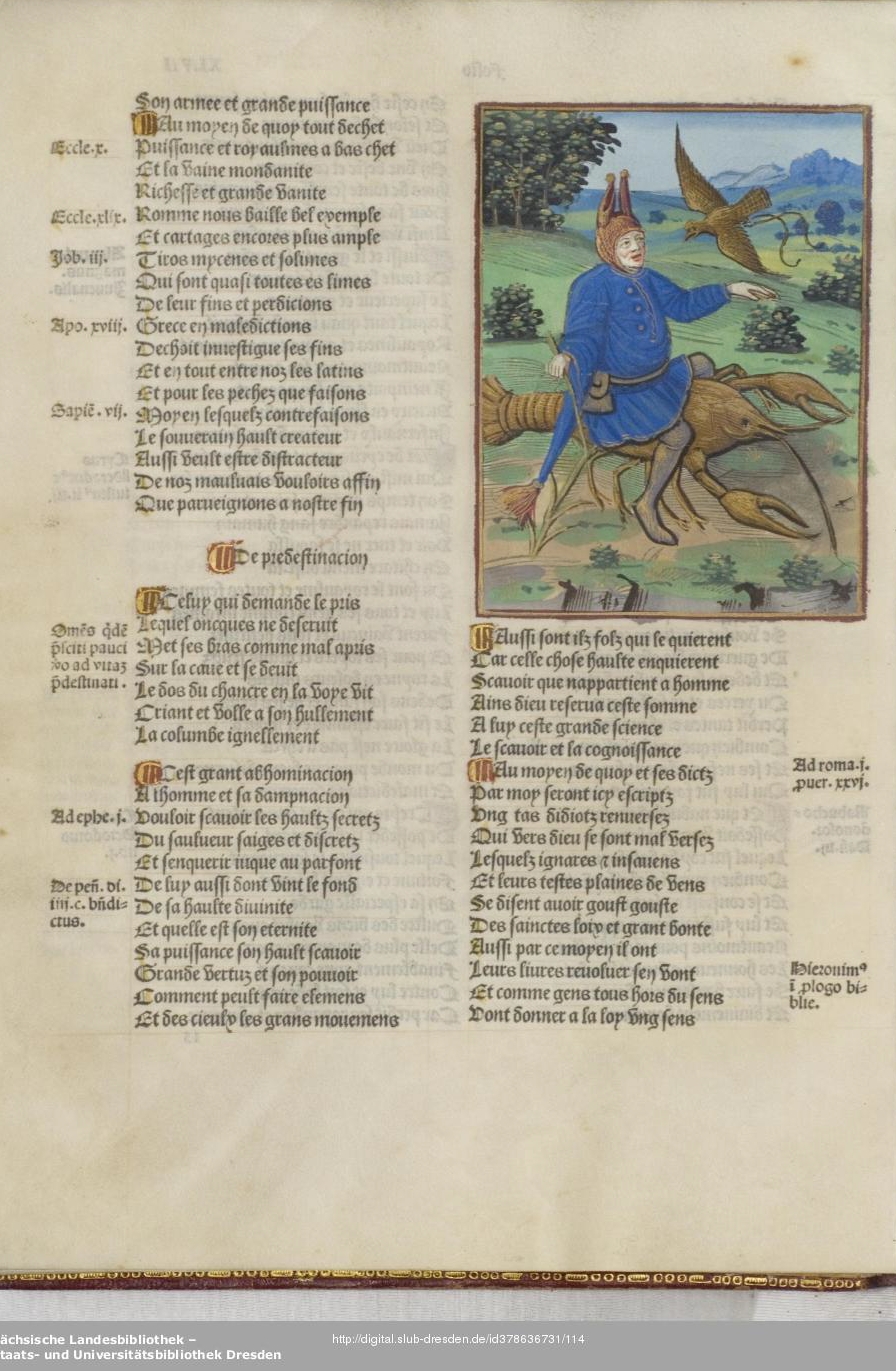 Son armee et grande puissance
Au moyen de quoy tout dechet
Eccle.x.
Puissance et royaulmes a bas chet
Et la vaine mondanite
Richesse et grande vanite
Eccle.xlix.
Romme nous baille bel exemple
Et cartages encores plus ample
Job. iij.
Tiros mycenes et solimes
Qui sont quasi toutes es limes
De leur fins et perdicions
Apo. xviij.
Grece en maledictions
Dechoit inuestigue ses fins
Et en tout entre noz les latins
Et pour les pechez que faisons
Sapiē. vij.
Moyen lesquelz contrefaisons
Le souuerain hault createur
Aussi veult estre distracteur
De noz mauluais vouloirs affin
Que parueignons a nostre fin
De predestinacion
Celuy qui demande le pris
Lequel oncques ne deseruit
Omēs qdē
p̄sciti pauci
vo ad vitaz
p̄destinati.
Met ses bras comme mal apris
Sur la caue et se deuit
Le dos du chancre en la voye vit
Criant et volle a son hullement
La columbe ignellement
Cest grant abhominacion
A lhomme et sa dampnacion
Ad ephe. j.
Vouloir scauoir les haultz secretz
Du saulueur saiges et discretz
Et senquerir iuque au parfont
De pen̄. di.
iiij.c. bn̄di=
ctus.
De luy aussi dont vint le fond
De sa haulte diuinite
Et quelle est son eternite
Sa puissance son hault scauoir
Grande vertuz et son pouuoir
Comment peult faire elemens
Et des cieulx les grans mouemens
Aussi sont ilz folz qui le quierent
Car celle chose haulte enquierent
Scauoir que nappartient a homme
Ains dieu reserua ceste somme
A luy ceste grande science
Le scauoir et la cognoissance
Ad roma.j.
puer. xxvj.
Au moyen de quoy et ses dictz
Par moy seront icy escriptz
Vng tas didiotz renuersez
Qui vers dieu se sont mal versez
Lesquelz ignares & insauens
Et leurs testes plaines de vens
Se disent auoir goust gouste
Des sainctes loix et grant bonte
Aussi par ce moyen il ont
Hieronimꝰ
ī plogo bi=
blie.
Leurs liures reuoluer sen vont
Et comme gens tous hors du sens
Vont donner a la loy vng sens
ächsische Landesbibliothek –
taats- und Universitätsbibliothek Dresden
http://digital.slub-dresden.de/id378636731/114